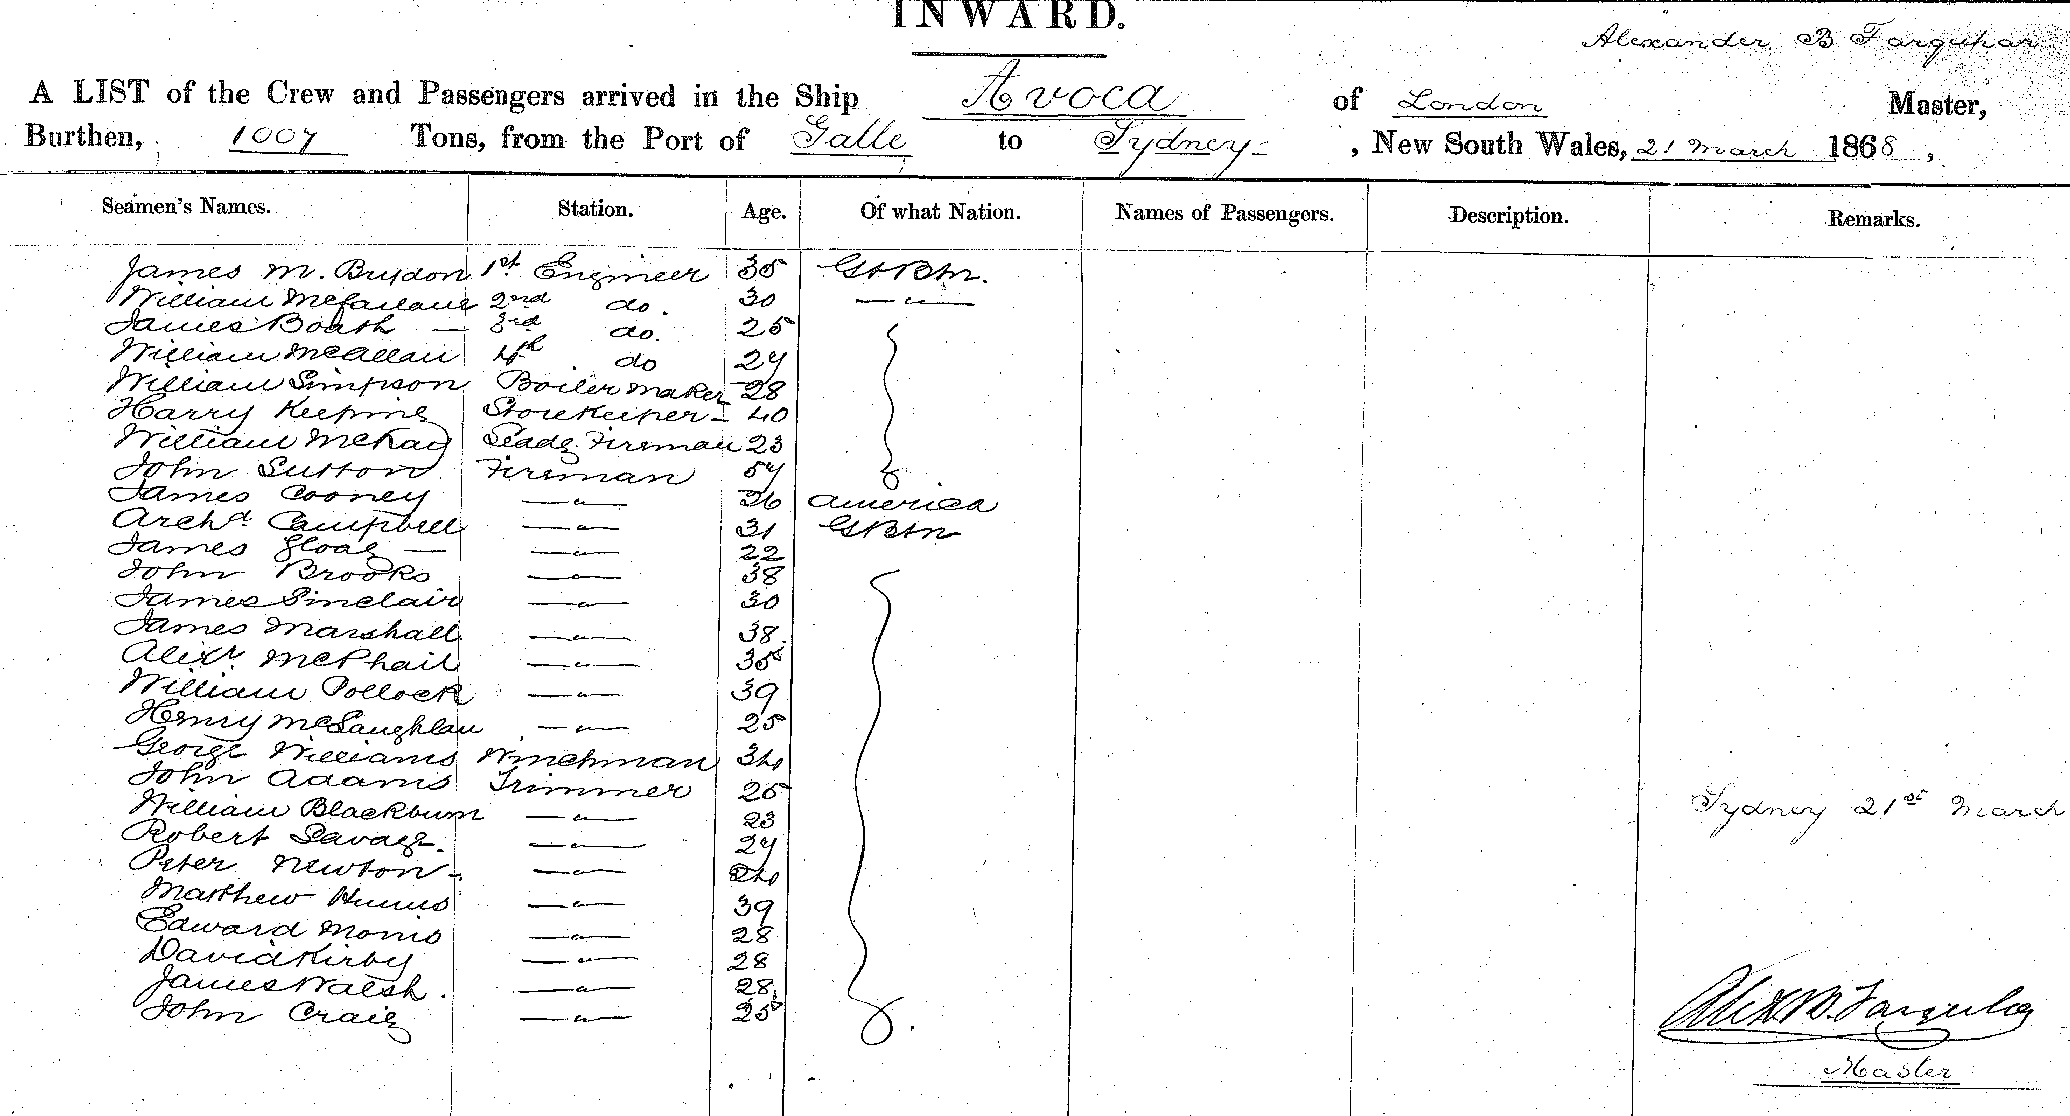 INWARD.
Alexander B Farquhar
A LIST of the Crew and Passengers arrived in the Ship Avoca of London Master,
Burthen, 1007 Tons, from the Port of Galle to Sydney , New South Wales, 21 March 1868 ,
Seamen's Names. Station. Age. Of what Nation. Names of Passengers. Description. Remarks.
James M. Brydon 1st Engineer 35 Gt Btn.
William McFarlane 2nd do. 30 — " —
James Boath — 3rd do. 25
William McAllan 4th do 27
William Simpson Boiler Maker 28
Harry Keeping Storekeeper 40
William McKay Leadg Fireman 23
John Sutton Fireman 57
James Cooney — " — 36 America
Archd Campbell — " — 31 Gt Btn
James Gloag — — " — 22
John Brooks — " — 38
James Sinclair — " — 30
James Marshall — " — 38
Alexr McPhail — " — 35
William Pollock — " — 39
Henry McLaughlan — " — 25
George Williams Winchman 34
John Adams Trimmer 25
William Blackburn — " — 23
Robert Savage. — " — 27
Peter Newton — " — 24
Matthew — " — 39
Edward Morris — " — 28
David Kirby — " — 28
James Walsh. — " — 28
John Craig — " — 25
Sydney 21st March
Alex B. Farquhar
Master